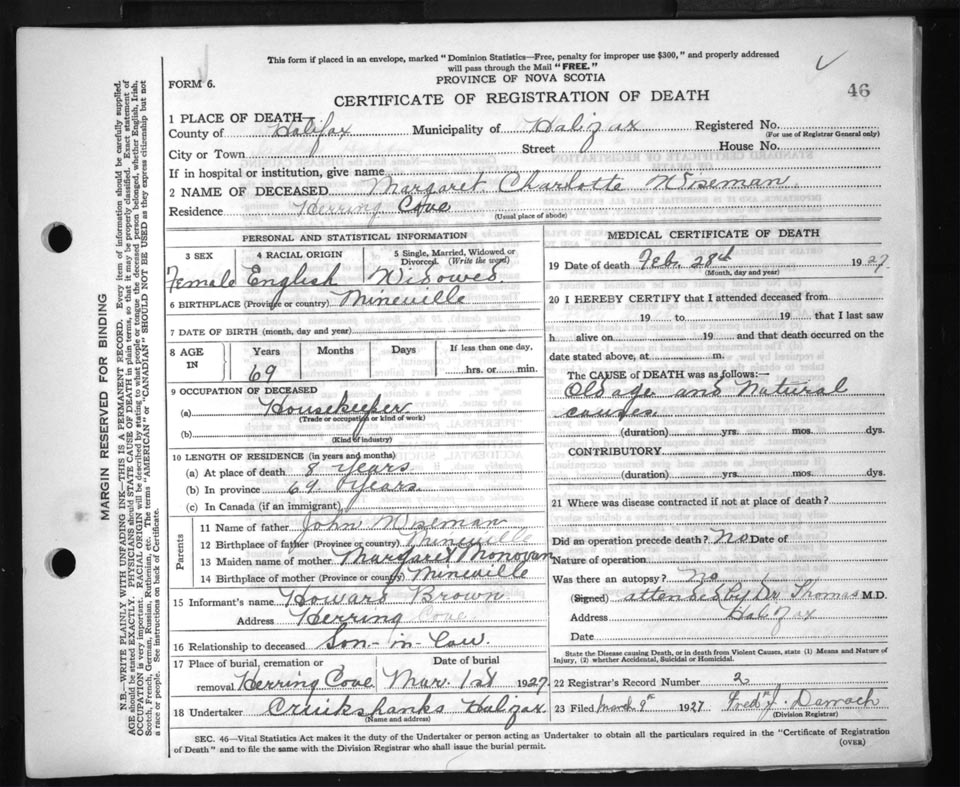 This form if placed in an envelope, marked "Dominion Statistics—Free, penalty for improper use $300," and properly addressed
will pass through the Mail "FREE."
FORM 6.
PROVINCE OF NOVA SCOTIA
46
CERTIFICATE OF REGISTRATION OF DEATH
1 PLACE OF DEATH—
County of Halifax Municipality of Halifax Registered No.
(For use of Registrar General only)
City or Town Street House No.
If in hospital or institution, give name
2 NAME OF DECEASED Margaret Charlotte Wiseman
Residence Herring Cove
(Usual place of abode)
PERSONAL AND STATISTICAL INFORMATION
3 SEX 4 RACIAL ORIGIN 5 Single, Married, Widowed or
Divorced. (Write the word)
Female English Widowed.
6 BIRTHPLACE (Province or country) Mineville
7 DATE OF BIRTH (month, day and year)
8 AGE IN Years Months Days If less than one day,
69 hrs. or min.
9 OCCUPATION OF DECEASED
(a) Housekeeper
(Trade or occupation or kind of work)
(b)
(Kind of industry)
10 LENGTH OF RESIDENCE (in years and months)
(a) At place of death 8 years
(b) In province 69 years
(c) In Canada (if an immigrant)
Parents
11 Name of father John Wiseman
12 Birthplace of father (Province or country) Mineville
13 Maiden name of mother Margaret Monovan
14 Birthplace of mother (Province or country) Mineville
15 Informant's name Howard Brown
Address Herring Cove
16 Relationship to deceased Son-in-law.
17 Place of burial, cremation or Date of burial
removal Herring Cove Mar. 1st 1927
18 Undertaker Cruikshanks Halifax
(Name and address)
MEDICAL CERTIFICATE OF DEATH
19 Date of death Feb. 28th 1927
(Month, day and year)
20 I HEREBY CERTIFY that I attended deceased from
19 to 19 that I last saw
h alive on 19 and that death occurred on the
date stated above, at m.
The CAUSE OF DEATH was as follows:—
Old age and Natural
causes.
(duration) yrs. mos. dys.
CONTRIBUTORY
(duration) yrs. mos. dys.
21 Where was disease contracted if not at place of death?
Did an operation precede death? No Date of
Nature of operation
Was there an autopsy? No
(Signed) attended by Dr Thomas M.D.
Address Halifax
Date
State the Disease causing Death, or in death from Violent Causes, state (1) Means and Nature of
Injury, (2) whether Accidental, Suicidal or Homicidal.
22 Registrar's Record Number 2
23 Filed March 9th 1927 Fred J. Darrach
(Division Registrar)
SEC. 46—Vital Statistics Act makes it the duty of the Undertaker or person acting as Undertaker to obtain all the particulars required in the "Certificate of Registration
of Death" and to file the same with the Division Registrar who shall issue the burial permit.
(OVER)
MARGIN RESERVED FOR BINDING
N.B.—WRITE PLAINLY WITH UNFADING INK—THIS IS A PERMANENT RECORD. Every item of information should be carefully supplied.
AGE should be stated EXACTLY. PHYSICIANS should STATE CAUSE OF DEATH in plain terms, so that it may be properly classified. Exact statement of
OCCUPATION is very important. RACIAL ORIGIN will be described by stating to what people or tongue the deceased person belonged, whether English, Irish,
Scotch, French, German, Russian, Ruthenian, etc. The terms "AMERICAN" or "CANADIAN" SHOULD NOT BE USED as they express citizenship but not
a race or people. See instructions on back of Certificate.